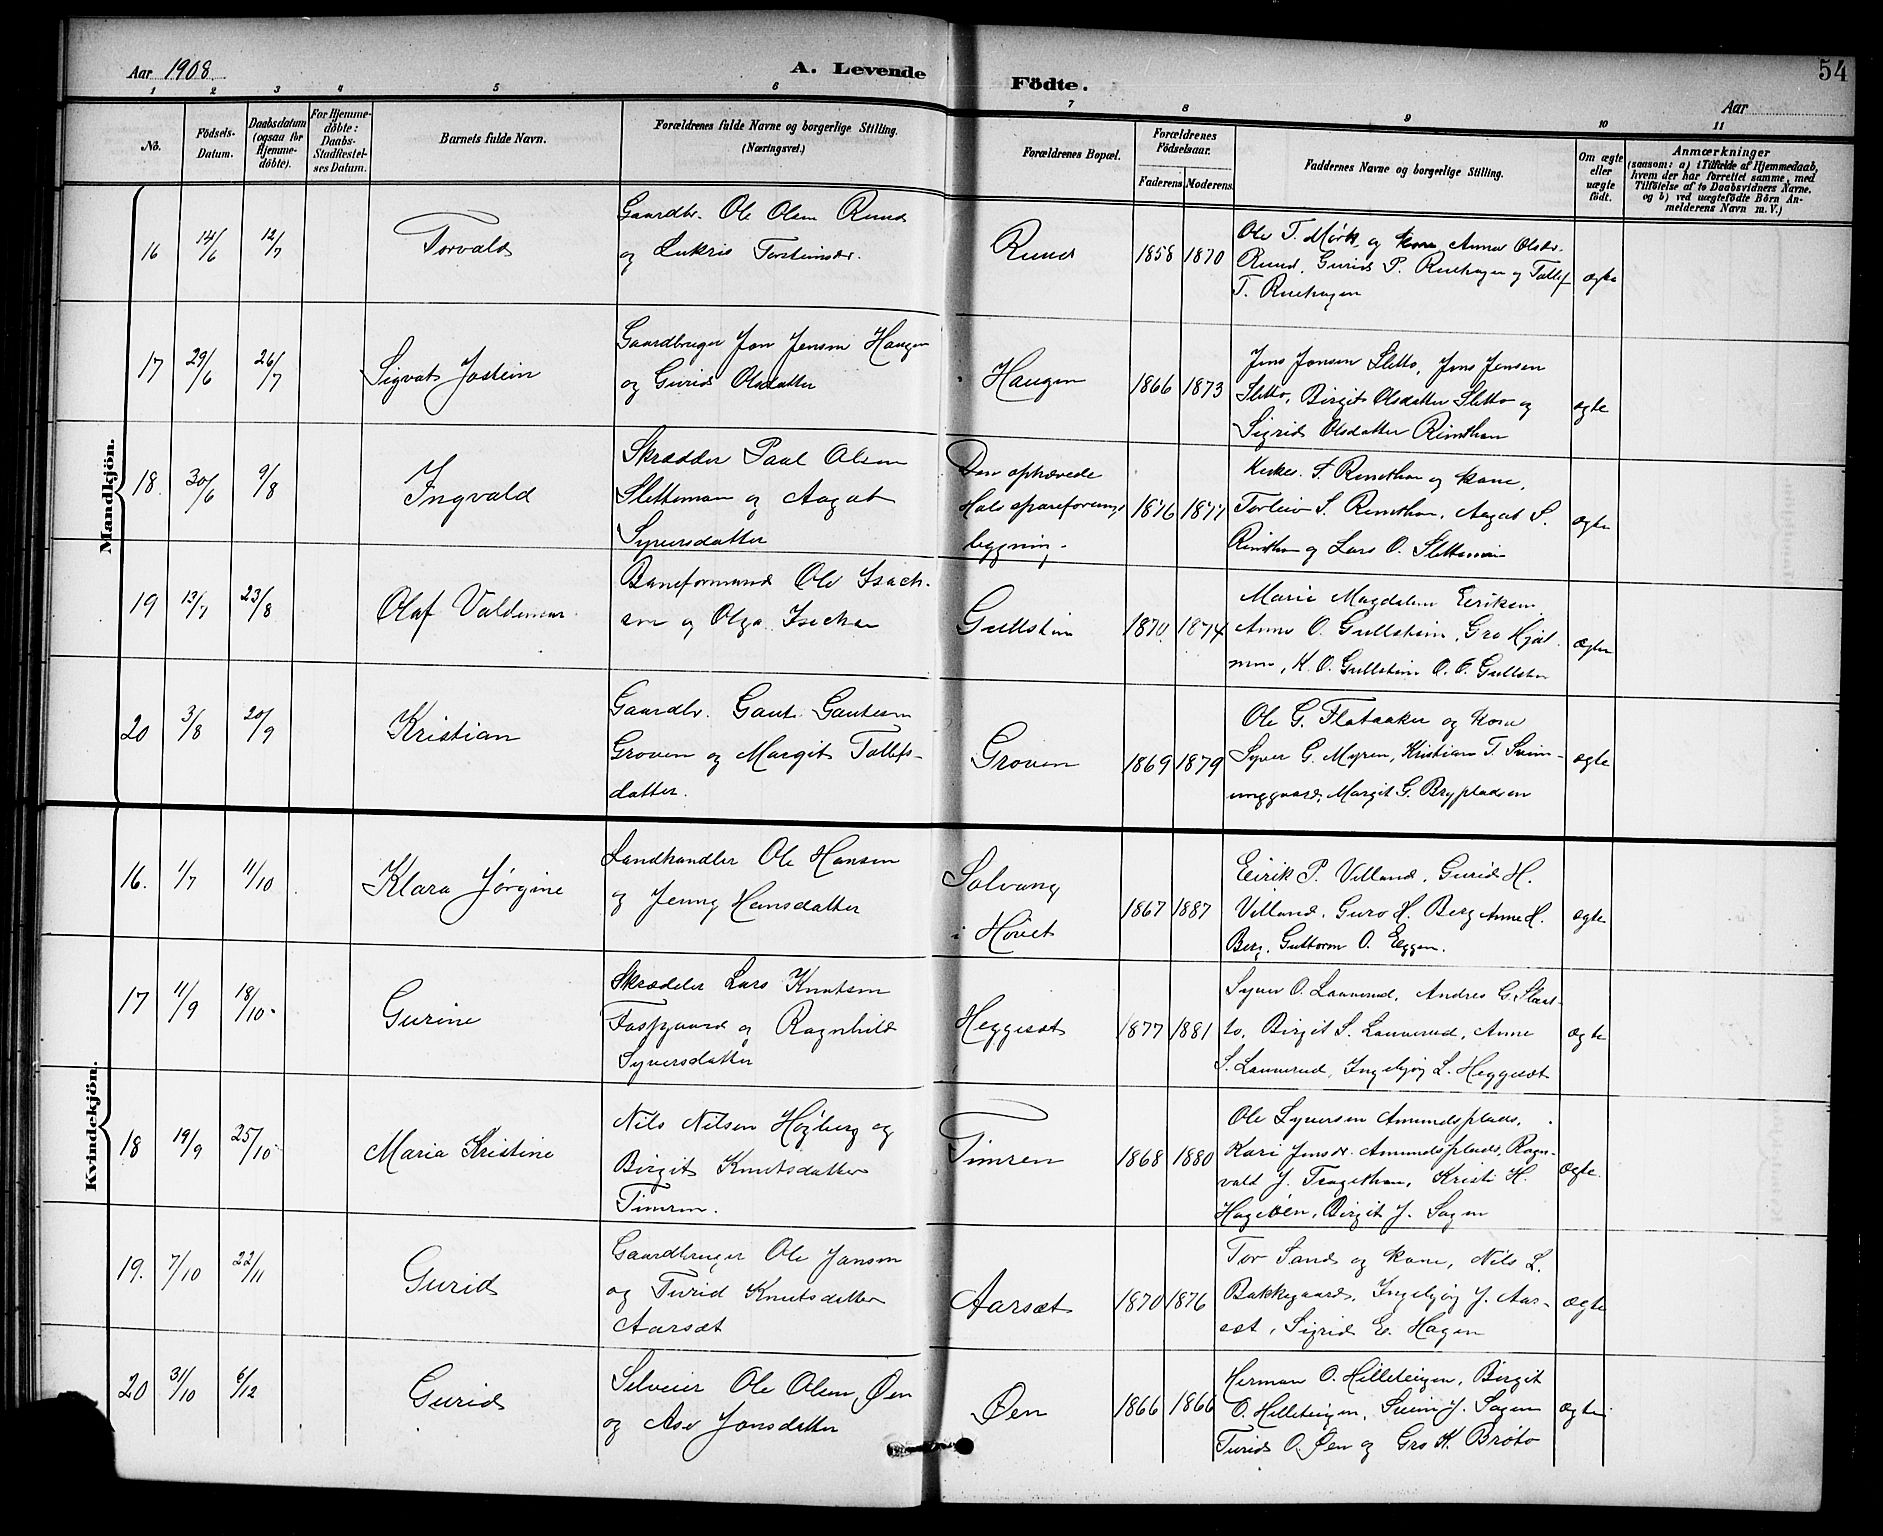 Aar 1908. A. Levende Födte. Aar 54
1 2 3 4 5 6 7 8 9 10 11
No. Födsels-Datum. Daabsdatum (ogsaa for Hjemmedöbte). For Hjemmedöbte: Daabs-Stadfestelses Datum. Barnets fulde Navn. Forældrenes fulde Navne og borgerlige Stilling. (Næringsvei.) Forældrenes Bopæl. Forældrenes Födselsaar. Faderens Moderens Faddernes Navne og borgerlige Stilling. Om ægte eller uægte født. Anmærkninger (saasom: a) i Tilfælde af Hjemmedaab, hvem der har forrettet samme, med Tilföielse af to Daabsvidners Navne. og b) ved uægtefödte Börn Anmelderens Navn m. V.)
Mandkjön.
16 14/6 12/7 Torvald
Gaardbr. Ole Olsen Rund
og Lukris Torsteinsdr.
Rund 1858 1870
Ole T. Mørk og kone, Anne Olsdr.
Rund, Gurid P. Ruehagen og Tollef
T. Ruehagen
ægte
17 29/6 26/7 Sigvat Jostein
Gaardbruger Jon Jensen Haugen
og Gurid Olsdatter
Haugen 1866 1873
Jens Jonsen Sletto, Jens Jensen
Sletto, Birgit Olsdatter Sletto og
Sigrid Olsdatter Rimthun
ægte
18. 30/6 9/8 Ingvald
Skrædder Paul Olsen
Slettemoen og Aagat
Syversdatter
Den ophævede
Hols spareforenings
bygning.
1876 1877
S. Rimthun og kone,
Torleiv S. Rimthun, Aagat S.
Rimthun og Lars O. Slettemoen
ægte
19 13/7 23/8 Olaf Valdemar
Baneformand Ole Isach-
sen og Olga Isachsen
Gullstein 1870 1874
Marie Magdalene Eriksen,
Anne O. Gullstein, Gro Hjal-
men, K. O. Gullstein O. O. Gullstein
ægte
20 3/8 20/9 Kristian
Gaardbr. Gaut Gautesen
Groven og Margit Tollefs-
datter.
Groven 1869 1879
Ole G. Flataaker og kone
Syver G. Myren, Kristian T. Svein-
unggaard, Margit G. Brypladsen
ægte
Kvindekjön.
16. 1/7 11/10 Klara Jørgine
Landhandler Ole Hansen
og Jenny Hansdatter
Solvang
i Hovet
1867 1887
Eirik P. Villand, Gurid H.
Villand, Guro H. Berg Anne H.
Berg, Guttorm O. Eggen.
ægte
17 11/9 18/10 Gurine
Skrædder Lars Knutsen
Fossgaard og Ragnhild
Syversdatter
Heggesæt 1877 1881
Syver O. Lauverud, Andres G. Slaat-
to, Birgit S. Lauverud, Anne
S. Lauverud, Ingebjøg L. Heggesæt
ægte
18 19/9 25/10 Maria Kristine
Nils Nilsen Høgberg og
Birgit Knutsdatter
Timren.
Timren 1868 1880
Ole Syversen Amundsplads,
Kari Jensdr. Amundsplads, Ragn-
vald J. Tragethon, Kristi H.
Hagecoen, Birgit J. Sagen
ægte.
19. 7/10 22/11 Gurid
Gaardbruger Ole Jonsen
og Turid Knutsdatter
Aarsæt
Aarsæt 1870 1876
Tor Sand og kone, Nils L.
Bakkegaard, Ingebjøg J. Aar-
sæt, Sigrid E. Hagen
ægte
20 31/10 6/12 Gurid
Selveier Ole Olsen Øen
og Ase Jonsdatter
Øen 1866 1866
Herman O. Hilleteigen, Birgit
O. Hilleteigen, Svein J. Sagen
Turid O. Øen og Gro K. Bröto
ægte